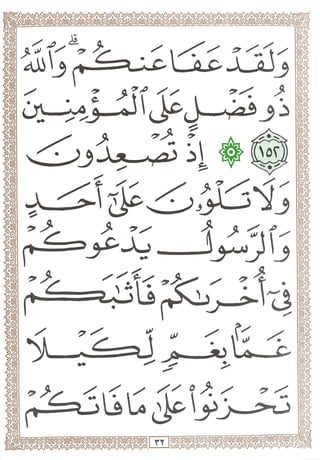 وَلَقَدْ عَفَا عَنكُمْ ۗ وَٱللَّهُ
ذُو فَضْلٍ عَلَى ٱلْمُؤْمِنِينَ
١٥٢ إِذْ تُصْعِدُونَ
وَلَا تَلْوُۥنَ عَلَىٰٓ أَحَدٍ
وَٱلرَّسُولُ يَدْعُوكُمْ
فِىٓ أُخْرَىٰكُمْ فَأَثَٰبَكُمْ
غَمًّۢا بِغَمٍّ لِّكَيْلَا
تَحْزَنُوا۟ عَلَىٰ مَا فَاتَكُمْ
٣٢